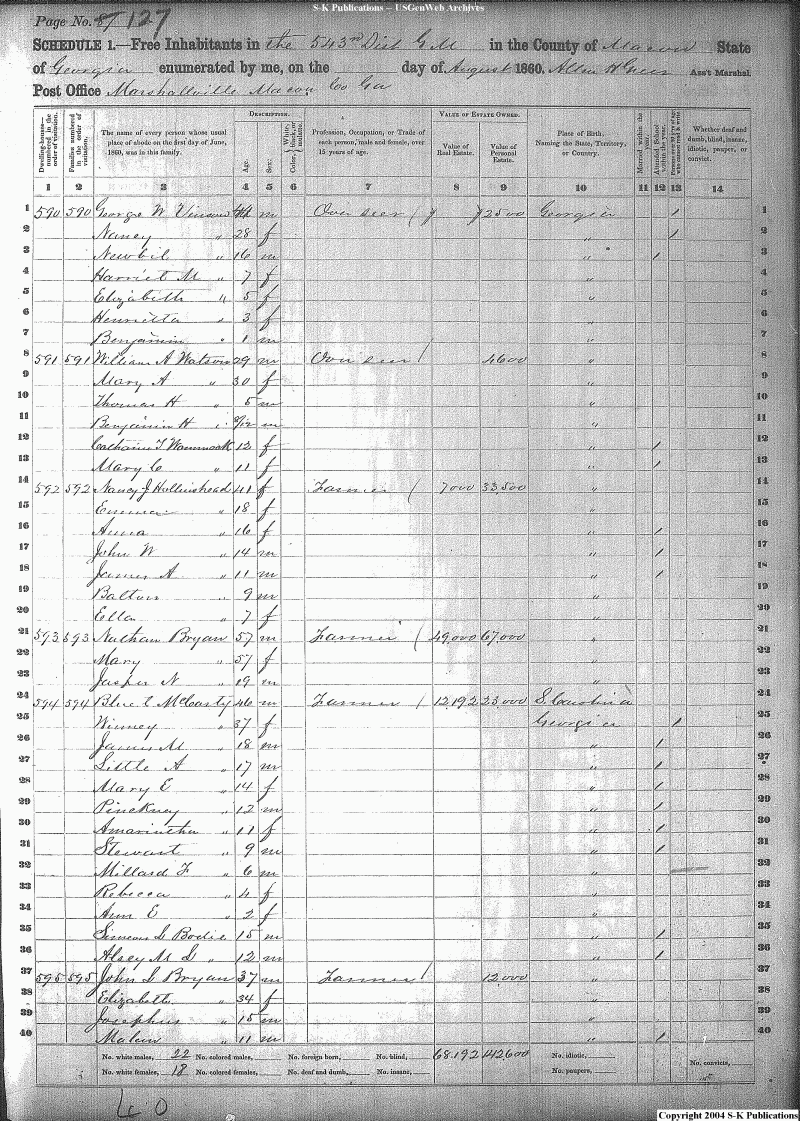 S-K Publications – USGenWeb Archives
Page No. 87 127
SCHEDULE 1.—Free Inhabitants in the 543rd Dist G.M in the County of Macon State
of Georgia enumerated by me, on the day of August 1860. Allen H Greer Ass't Marshal.
Post Office Marshallville Macon Co Ga
Dwelling-houses—numbered in the order of visitation.
Families numbered in the order of visitation.
The name of every person whose usual place of abode on the first day of June, 1860, was in this family.
DESCRIPTION.
Age.
Sex.
White, Color, black, or mulatto.
Profession, Occupation, or Trade of each person, male and female, over 15 years of age.
VALUE OF ESTATE OWNED.
Value of Real Estate.
Value of Personal Estate.
Place of Birth, Naming the State, Territory, or Country.
Married within the year.
Attended School within the year.
Persons over 20 y'rs of age who cannot read & write.
Whether deaf and dumb, blind, insane, idiotic, pauper, or convict.
1 2 3 4 5 6 7 8 9 10 11 12 13 14
1 590 590 George W 44 m Over seer 2500 Georgia / 1
2 Nancy " 28 f " / 2
3 Newbil " 16 m " / 3
4 Harriet M " 7 f " 4
5 Elizabeth " 5 f " 5
6 Henrietta " 3 f " 6
7 Benjamin " 1 m " 7
8 591 591 William A Watson 29 m Over seer 4600 " 8
9 Mary A " 30 f " 9
10 Thomas H " 5 m " 10
11 Benjamin H " m " 11
12 Catharine T Wammack 12 f " / 12
13 Mary C " 11 f " / 13
14 592 592 Nancy J Hollinshead 41 f Farmer 7000 33,500 " 14
15 Emma " 18 f " 15
16 Anna " 16 f " / 16
17 John W " 14 m " / 17
18 James A " 11 m " / 18
19 Balton " 9 m " 19
20 Ella " 7 f " 20
21 593 593 Nathan Bryan 57 m Farmer 49,000 67,000 " 21
22 Mary " 57 f " 22
23 Jasper N " 19 m " 23
24 594 594 McCarty 46 m Farmer 12,192 23,000 S. Carolina 24
25 Winney " 37 f Georgia / 25
26 James M " 18 m " / 26
27 Little A " 17 m " / 27
28 Mary E " 14 f " / 28
29 Pinckney " 12 m " / 29
30 Amarintha " 11 f " / 30
31 Stewart " 9 m " / 31
32 Millard F " 6 m " 32
33 Rebecca " 4 f " 33
34 Ann E " 2 f " 34
35 Simeon L Bodie 15 m " / 35
36 Alsey M L " 12 m " / 36
37 595 595 John L Bryan 37 m Farmer 12,000 " 37
38 Elizabeth " 34 f " 38
39 Josephus " 15 m " 39
40 " 11 m " / 40
No. white males, 22 No. colored males, No. foreign born, No. blind, 68,192 142600 No. idiotic, No. convicts,
No. white females, 18 No. colored females, No. deaf and dumb, No. insane, No. paupers,
40
Copyright 2004 S-K Publications